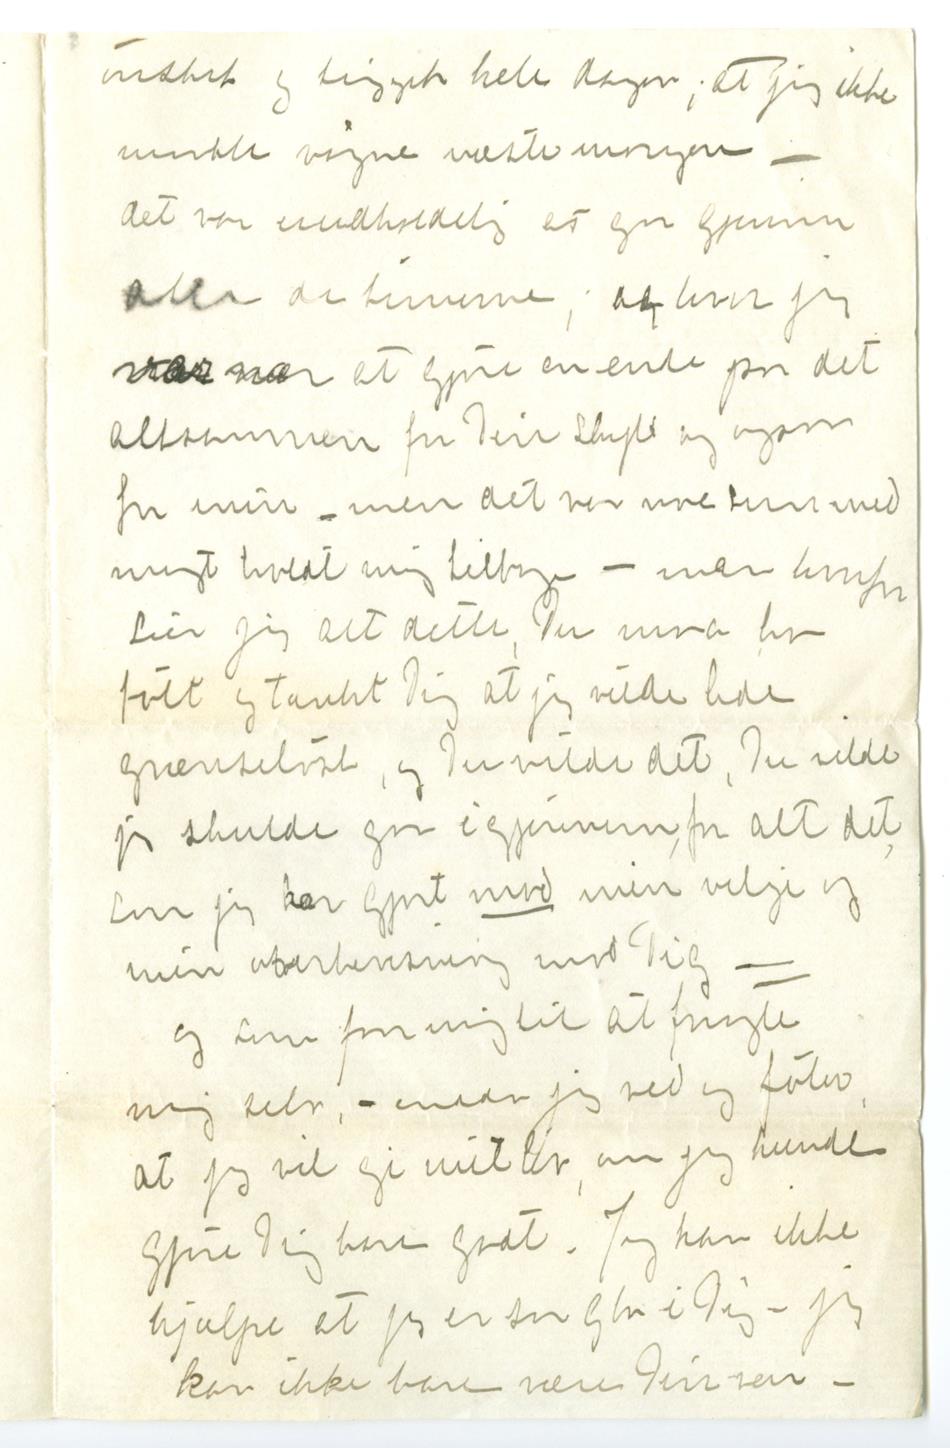 ønsket og trygget hele dagen, at jeg ikke
maatte vågne næste morgen —
det var uudholdelig at gå gjennem
alle de timerne, og hvor jeg
var nær at gjøre en ende på det
altsammen for Din skyld og også
for min – men det var noe som med
magt holdt mig tilbage – men hvorfor
sier jeg alt dette, Du må ha
følt og tænkt Dig at jeg vilde lide
grænseløst, og Du vilde det, Du vilde
jeg skulde gå igjennem, for alt det,
som jeg har gjort mod min vilje og
min overbevisning mod Dig —
og som får mig til at frygte
mig selv, – naar jeg ved og føler,
at jeg vil gi mit liv, om jeg kunde
gjøre Dig bare godt. Jeg kan ikke
hjælpe at jeg er så gla i Dig – jeg
kan ikke bare være Din ven –